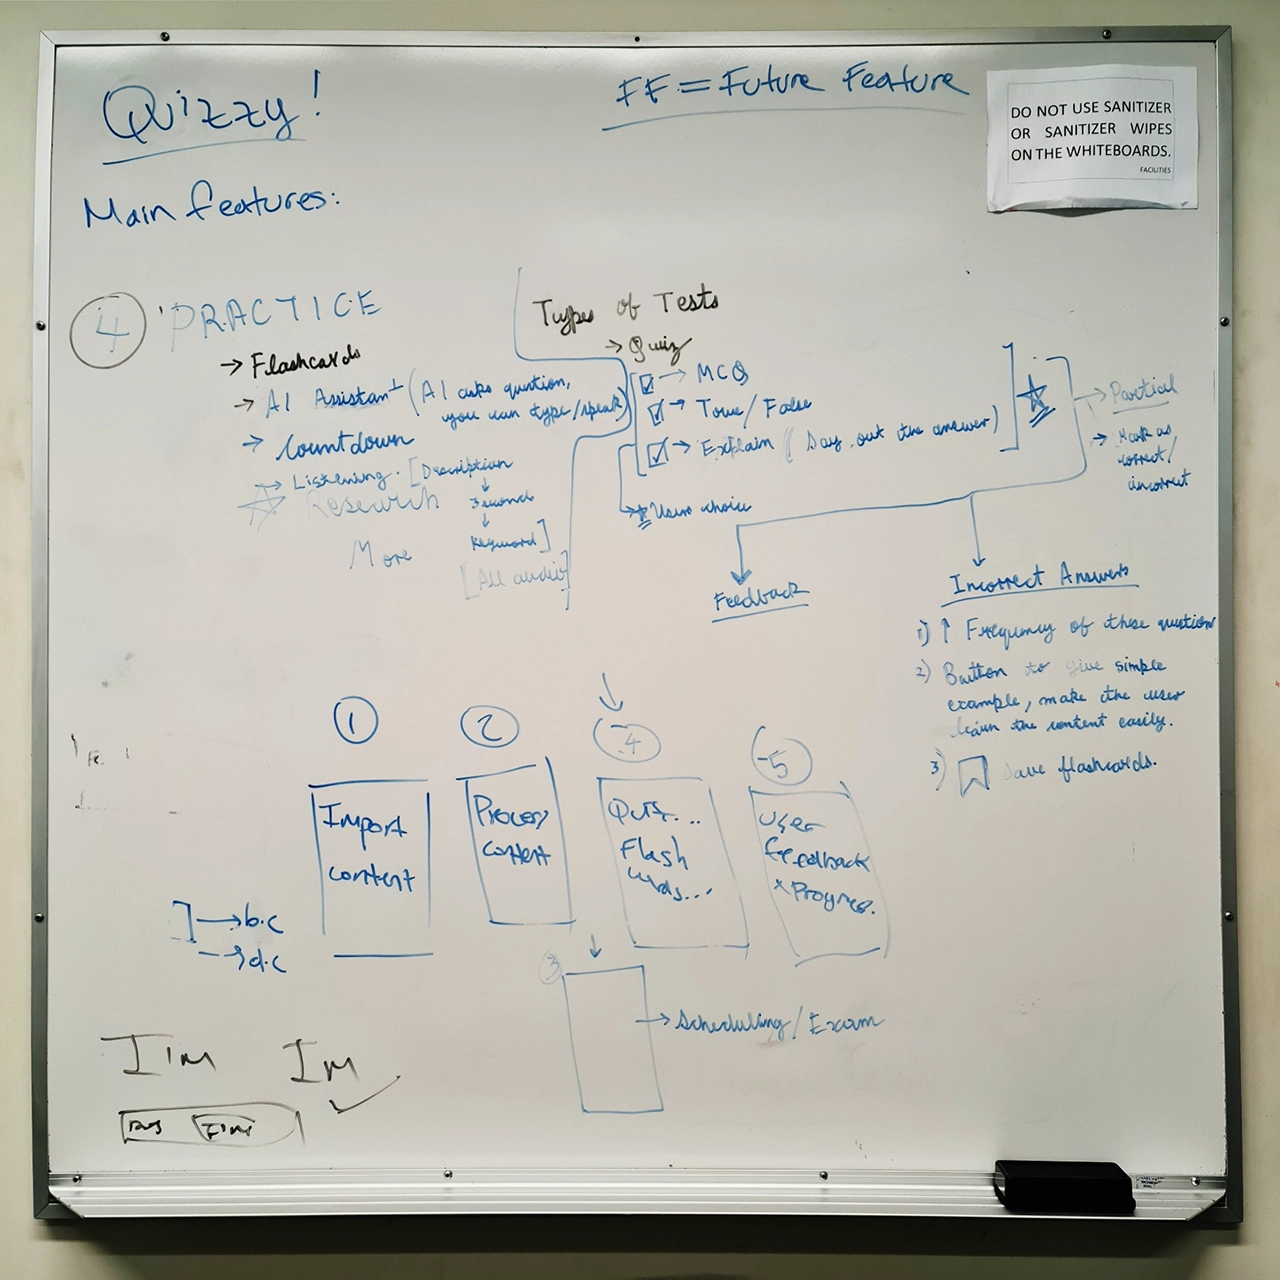 Quizzy!
FF = Future Feature
DO NOT USE SANITIZER
OR SANITIZER WIPES
ON THE WHITEBOARDS.
FACILITIES
Main features:
4 PRACTICE
→ Flashcards
→ AI Assistant (AI asks question,
you can type/speak)
→ Countdown
→ Listening. [Description
↓
3 seconds
↓
Keyword]
[All audio]
Research
More
Types of Tests
→ Quiz
→ MCQ
→ True/False
→ Explain (Say out the answer)
→ Users choice
→ Partial
→ Mark as
correct/
incorrect
Feedback
Incorrect Answers
1) ↑ Frequency of these question
2) Button to give simple
example, make the user
learn the content easily.
3) Save flashcards.
1
Import
content
2
Process
content
4
Quiz...
Flash
cards...
5
User
feedback
Progress.
→ b.c
→ d.c
3
→ Scheduling/Exam